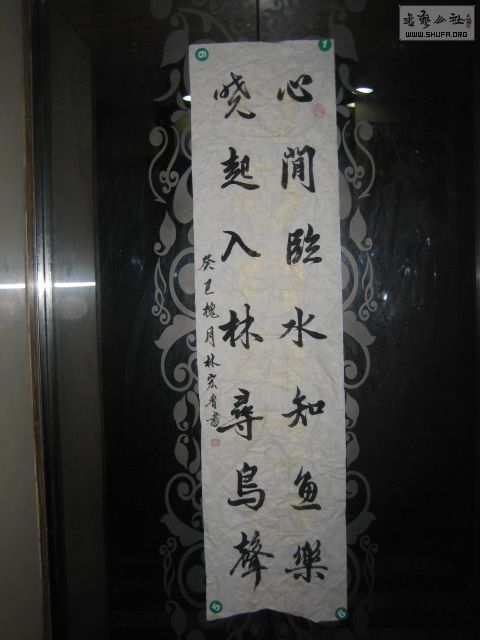 心閒臨水知魚樂
曉起入林尋鳥聲
癸巳槐月林宏青書
書藝公社
WWW.SHUFA.ORG